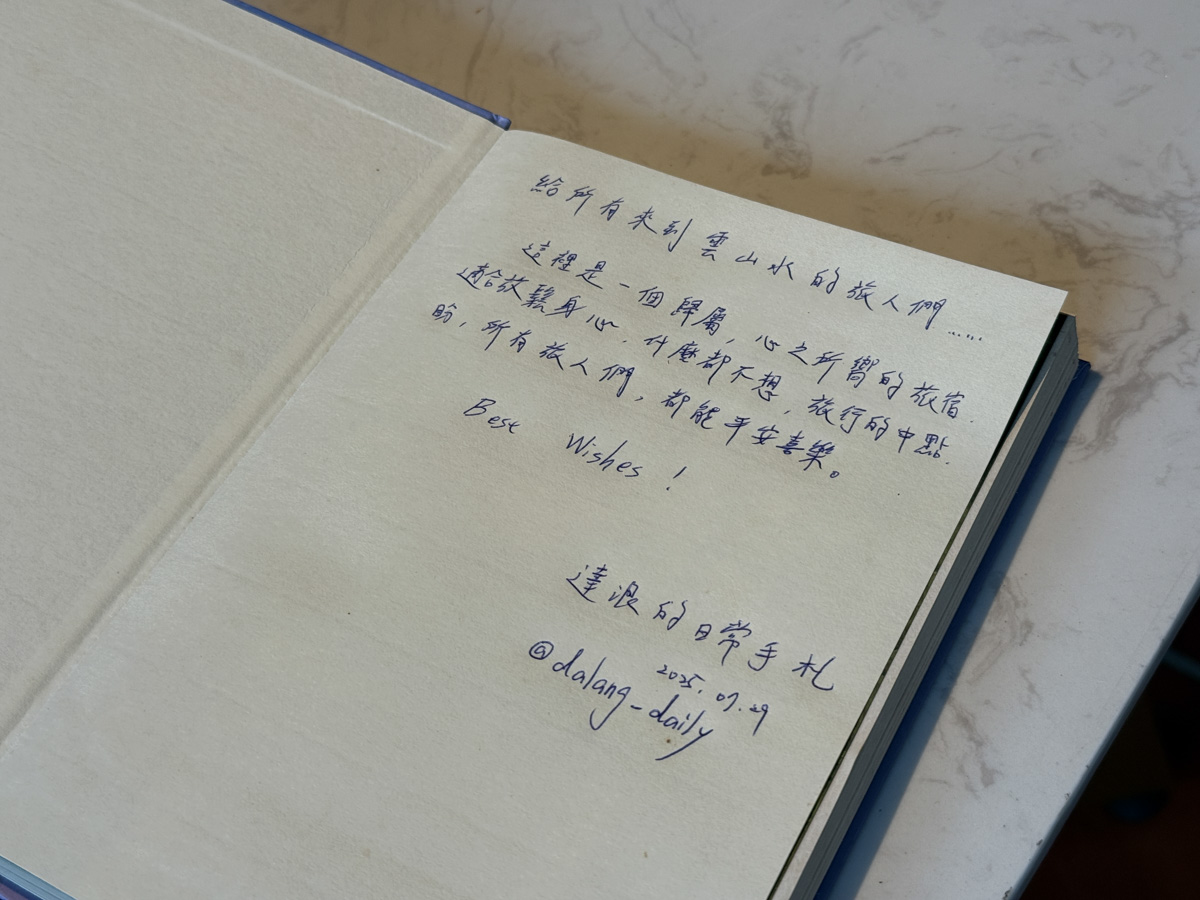 給所有來到雲山水的旅人們……
這裡是一個歸屬,心之所嚮的旅宿.
適合放鬆身心.什麼都不想,旅行的中點.
盼,所有旅人們,都能平安喜樂。
Best Wishes!
達浪的日常手札
2025.07.29
@dalang_daily